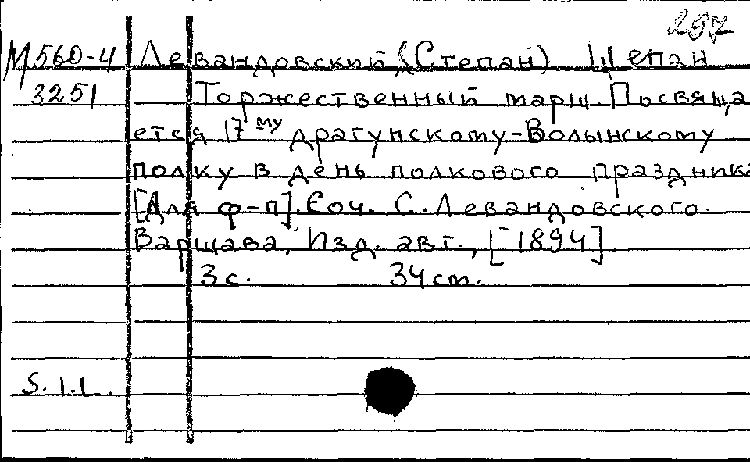 257
М560-4 Левандовский, (Степан) Щепан
3251 Торжественный марш. Посвяща
ется 17му драгунскому-Волынскому
полку в день полкового праздника
[Для ф-п]. Соч. С. Левандовского.
Варшава, Изд. авт., [1894]
3с. 34 ст.
S. I. L.